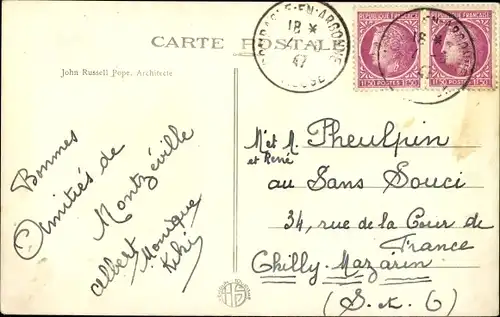 CARTE POSTALE
John Russell Pope, Architecte
Bonnes
Amitiés de
Montzéville
Albert Monique
Kiki
DOMBASLE-EN-ARGONNE
18 *
47
MEUSE
REPUBLIQUE FRANÇAISE
1F50 1F50
REPUBLIQUE FRANÇAISE
1F50 1F50
18
EN-ARGONNE
Mr et M. Pheulpin
et René
au Sans Souci
34, rue de la Cour de
France
Chilly-Mazarin
(S. et O)